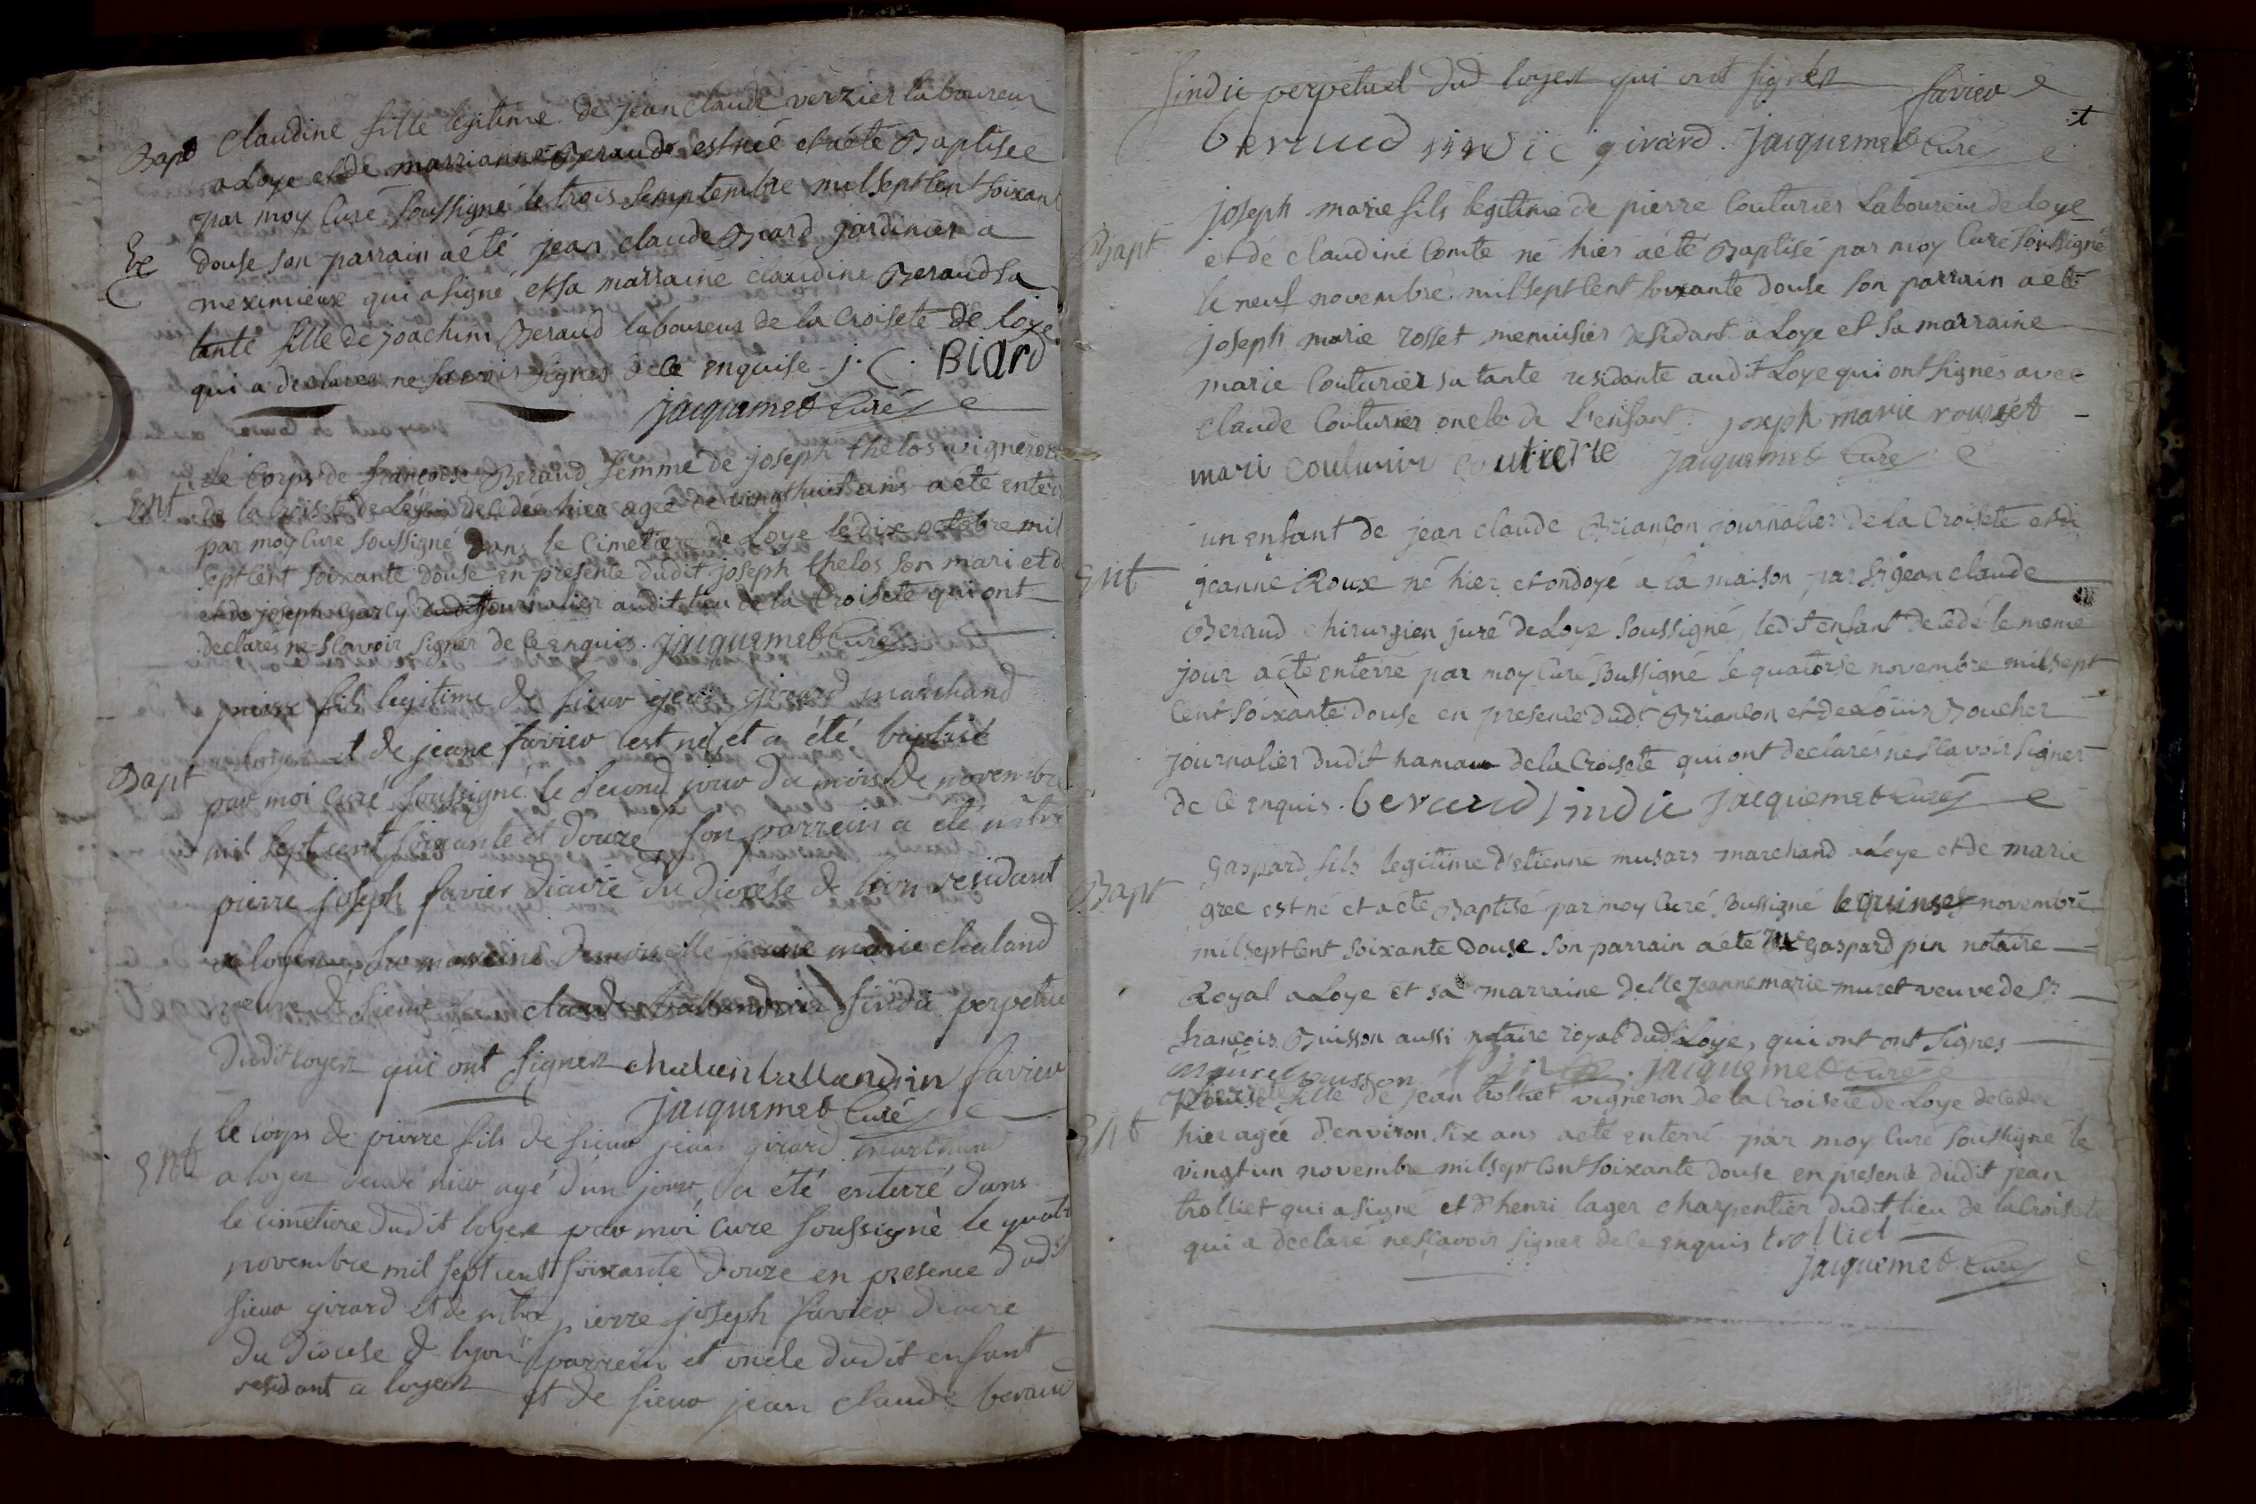 Bapt Claudine fille legitime de jean claude verzier laboureur
a Loye et de marrianne Beraud est neé et a été Baptisée
par moy Curé soussigné le trois semptembre mil sept Cent soixante
douse son parrain a été jean claude Biard jardinier a
meximieux qui a signé et sa marraine claudine Beraud sa
tante fille de joachim Beraud laboureur de la Croisete de Loye
qui a declarer ne sçavoir signer de ce enquise j. C. Biard
jacquemet Curé
Le Corps de françoise Beraud femme de joseph thelos vigneron
Ent de la Croisete de Loye decedée hier ageé de vingt huit ans a été enterré
par moy Curé soussigné dans le Cimetiere de Loye le dix octobre mil
sept Cent soixante douse en presente dudit joseph thelos son mari et d
et de joseph journalier audit lieu de la Croisete qui ont
declarés ne sçavoir signer de ce enquis. jacquemet Curé
pierre fils legitime de sieur jean girard marchand
a loyes et de jeane favier est né et a été baptisé
Bapt par moi Curé soussigné le second jour du mois de novembre
mil sept cent soixante et douze, son parrein a été mître
pierre joseph favier diacre du diocése de lion residant
a loyes, sa marreine demoiselle jeane marie chaland
veuve de sieur claude ballandrin sindic perpetuel
dudit loyes qui ont signes chalan ballandrin favier
jacquemet Curé
Ent le corps de pierre fils de sieur jean girard marchand
a loyes décédé hier agé d'un jour a été enterré dans
le cimetiere dudit loyes par moi curé soussigné le quatre
novembre mil sept cent soixante douze en presence dudt
sieur girard et de mître pierre joseph favier diacre
du diocese de lyon parrein et oncle dudit enfant
residant a loyes et de sieur jean claude beraud
sindic perpetuel dud loyes qui ont signes favier
beraud sindic girard. jacquemet Curé
joseph marie fils legitime de pierre Couturier Laboureur de Loye
Bapt et de claudine Comte né hier a été Baptisé par moy Curé soussigné
le neuf novembre mil sept Cent soixante douse son parrain a été
joseph marie rosset menuisier residant a Loye et sa marraine
marie Couturier sa tante residante audit Loye qui ont signés avec
claude Couturier oncle de l'enfant. joseph marie rousset
mari couturir coutierre jacquemet Curé
un enfant de jean claude Briancon journalier de la Croisete et de
Ent jeanne Roux né hier et ondoyé a la maison par Sr jean claude
Beraud chirurgien juré de Loye soussigné, ledit enfant decedé le meme
jour a été enterré par moy Curé soussigné le quatorse novembre mil sept
Cent soixante douse en presence dudt Briancon et de Loüis Boucher
journalier dudit hamau de la Croisete qui ont declarés ne sçavoir signer
de ce enquis. beraud sindic jacquemet Curé
Gaspard fils legitime d'etienne musars marchand a Loye et de marie
Bapt gree est né et a été Baptisé par moy Curé soussigné le quinse novembre
mil sept Cent soixante douse son parrain a été Me gaspard pin notaire
Royal a Loye et sa marraine delle jeanne marie muret veuve de Sr
françois Buisson aussi notaire royal dudt Loye, qui ont ont signes
muret buisson Pin jacquemet Curé
fille de jean trolliet vigneron de la Croisete de Loye decedée
Ent hier agée d'environ six ans a été enterré par moy Curé soussigné le
vingt un novembre mil sept Cent soixante douse en presence dudit jean
trolliet qui a signé et d'henri lager charpentier dudit lieu de la Croisete
qui a declaré ne sçavoir signer de ce enquis trolliet
jacquemet Curé